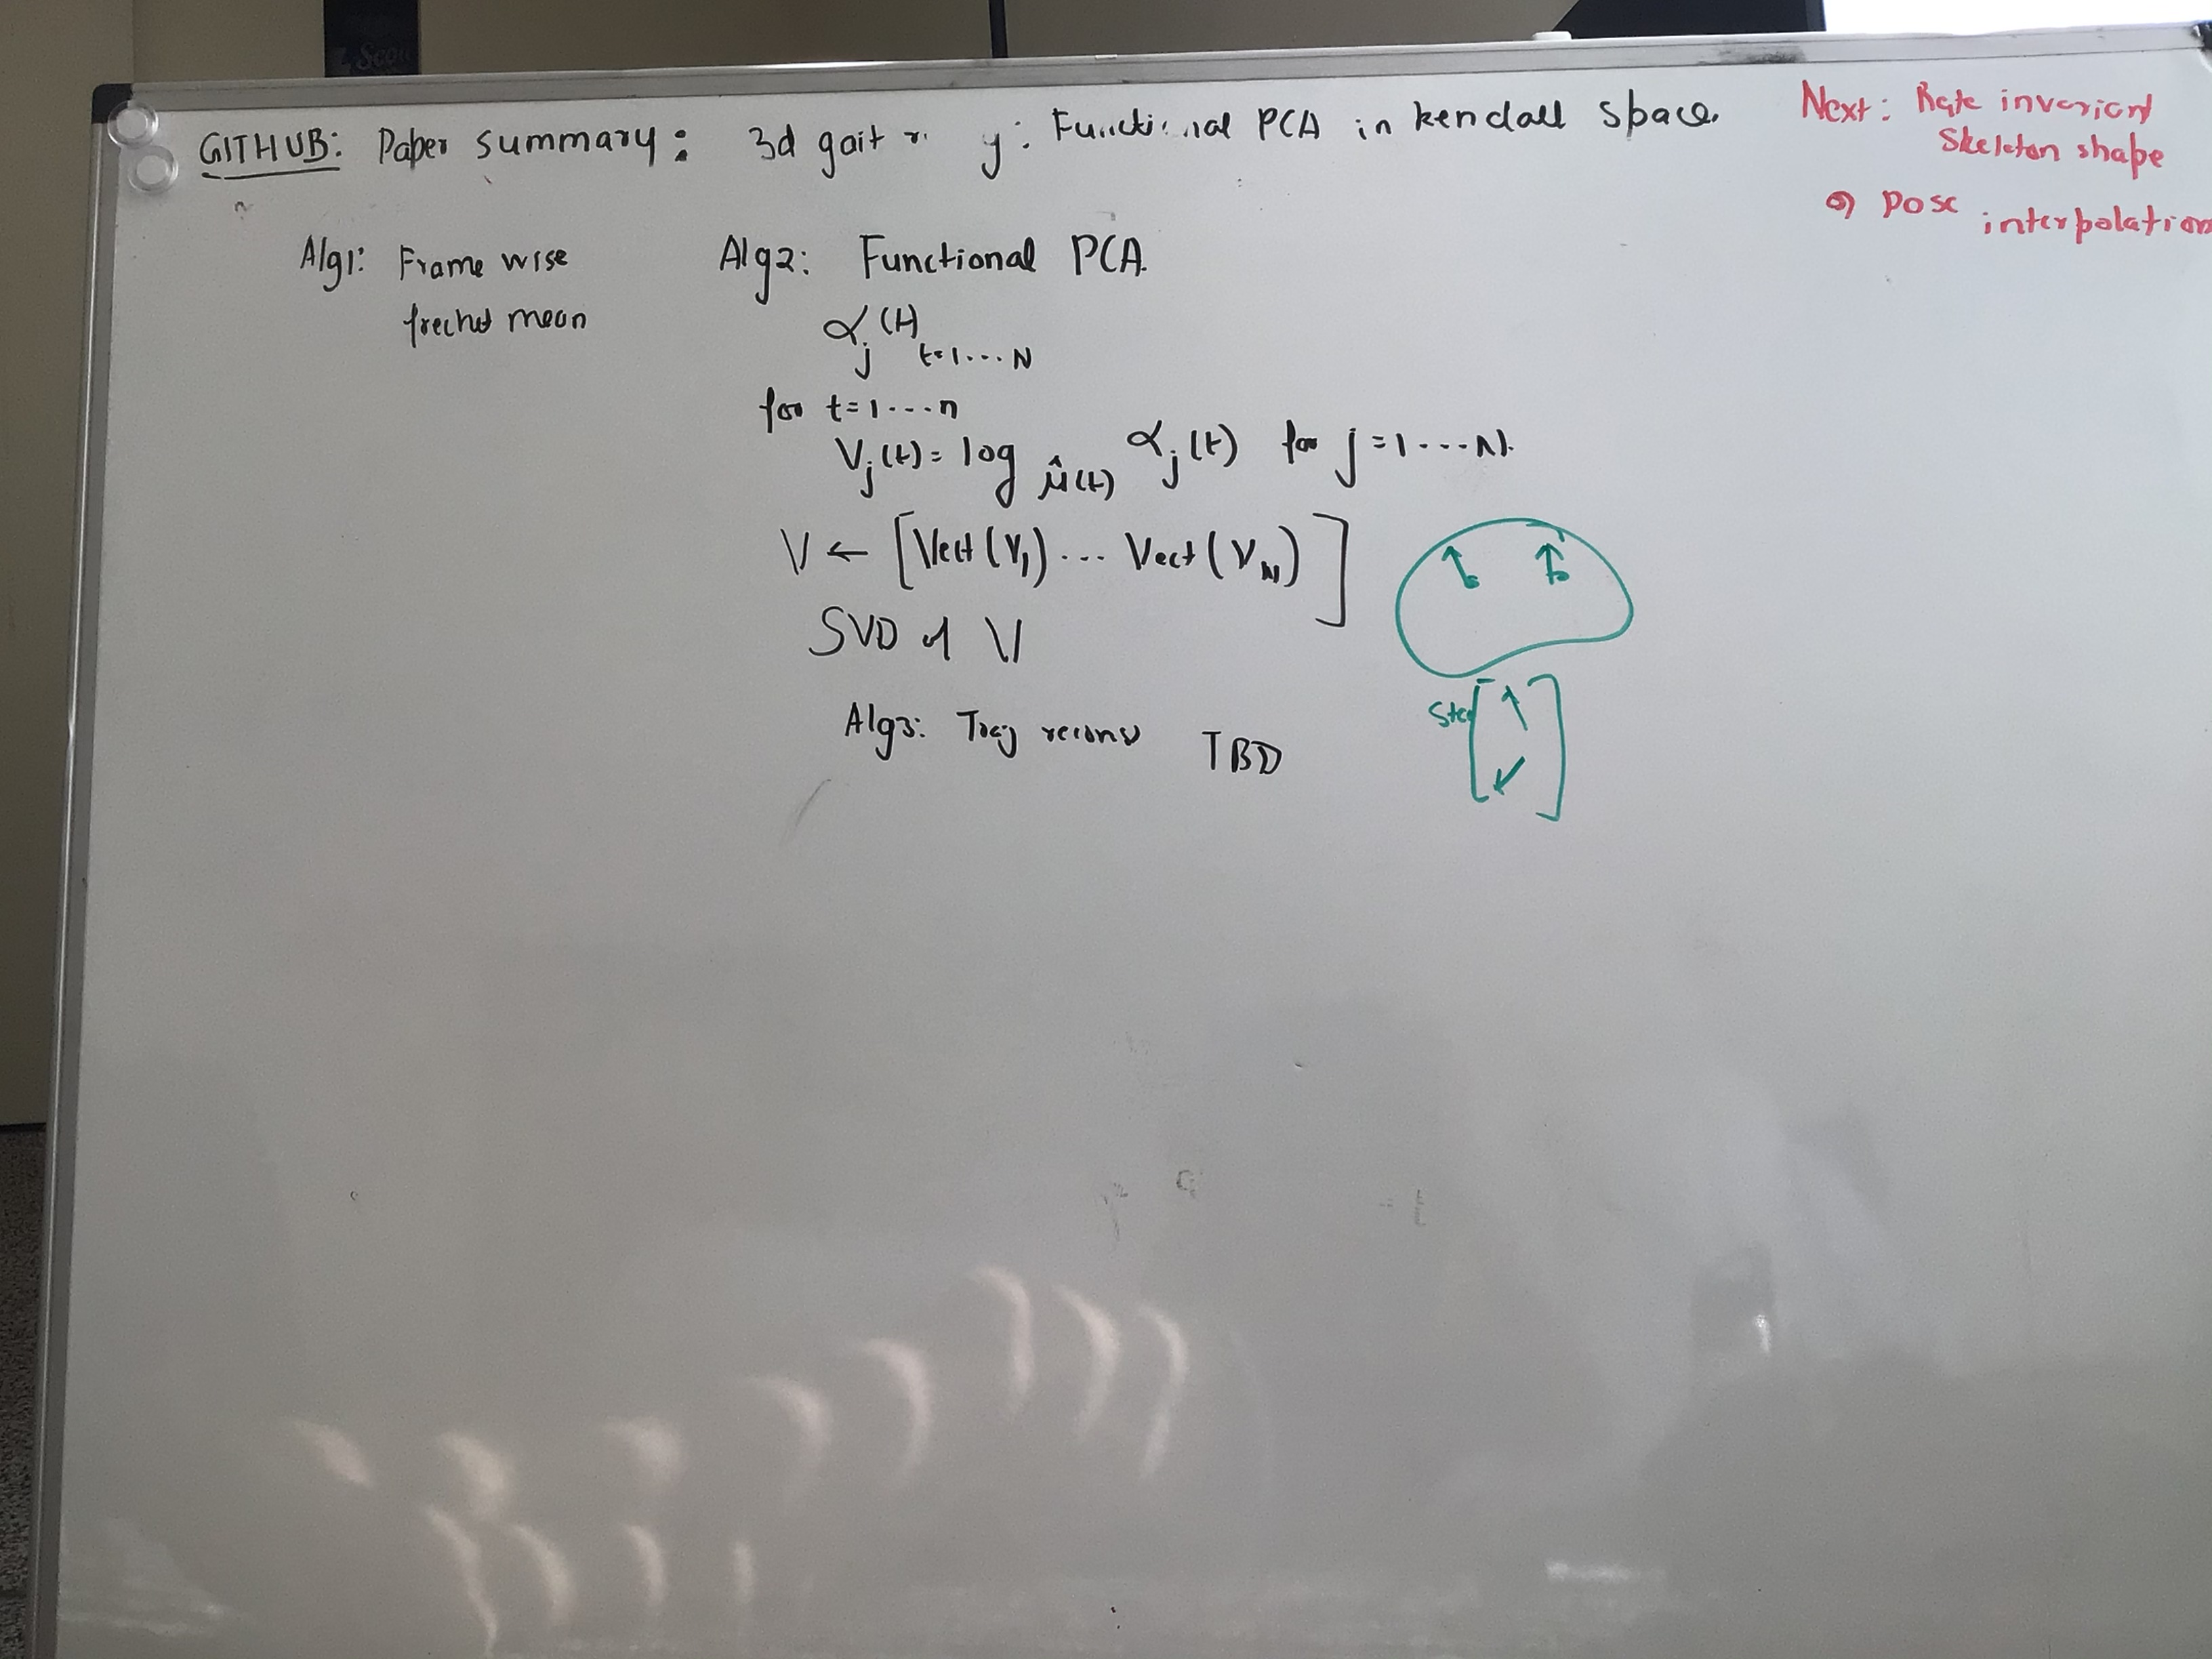 GITHUB: Paper summary: 3d gait y: Functional PCA in kendall space.
Next: Rate invariant
Skeleton shape
pose interpolation
Alg1: Frame wise
frechet mean
Alg2: Functional PCA
αj(t) t=1...N
for t=1...n
Vj(t) = log μ̂(t) αj(t) for j=1...N
V ← [Vect(V1) ... Vect(VN)]
SVD of V
Alg3: Traj recons TBD